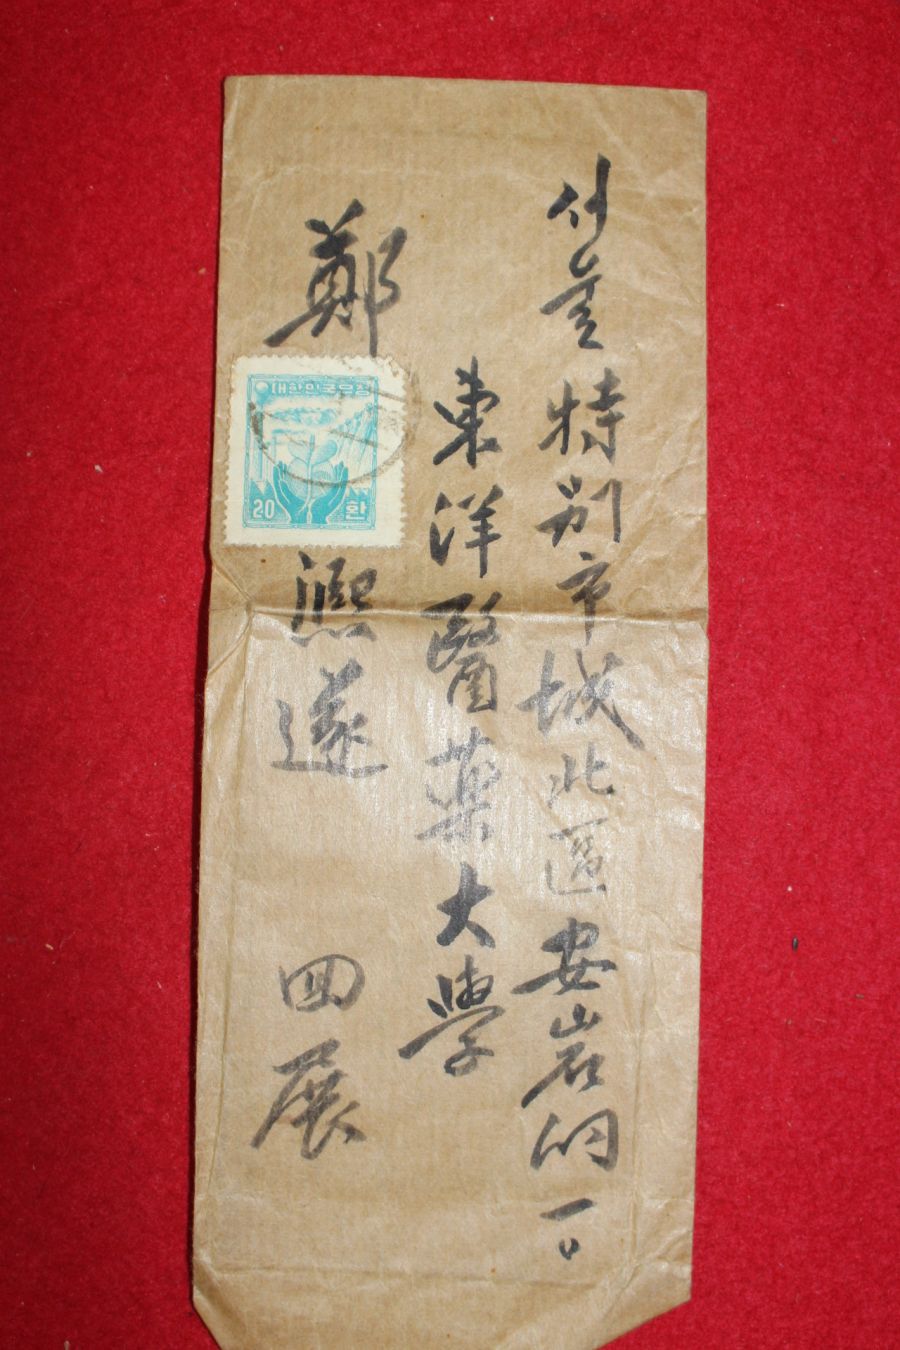 서울特別市城北區安岩洞
東洋醫薬大學
鄭熙遂 四展
대한민국우표
20 환